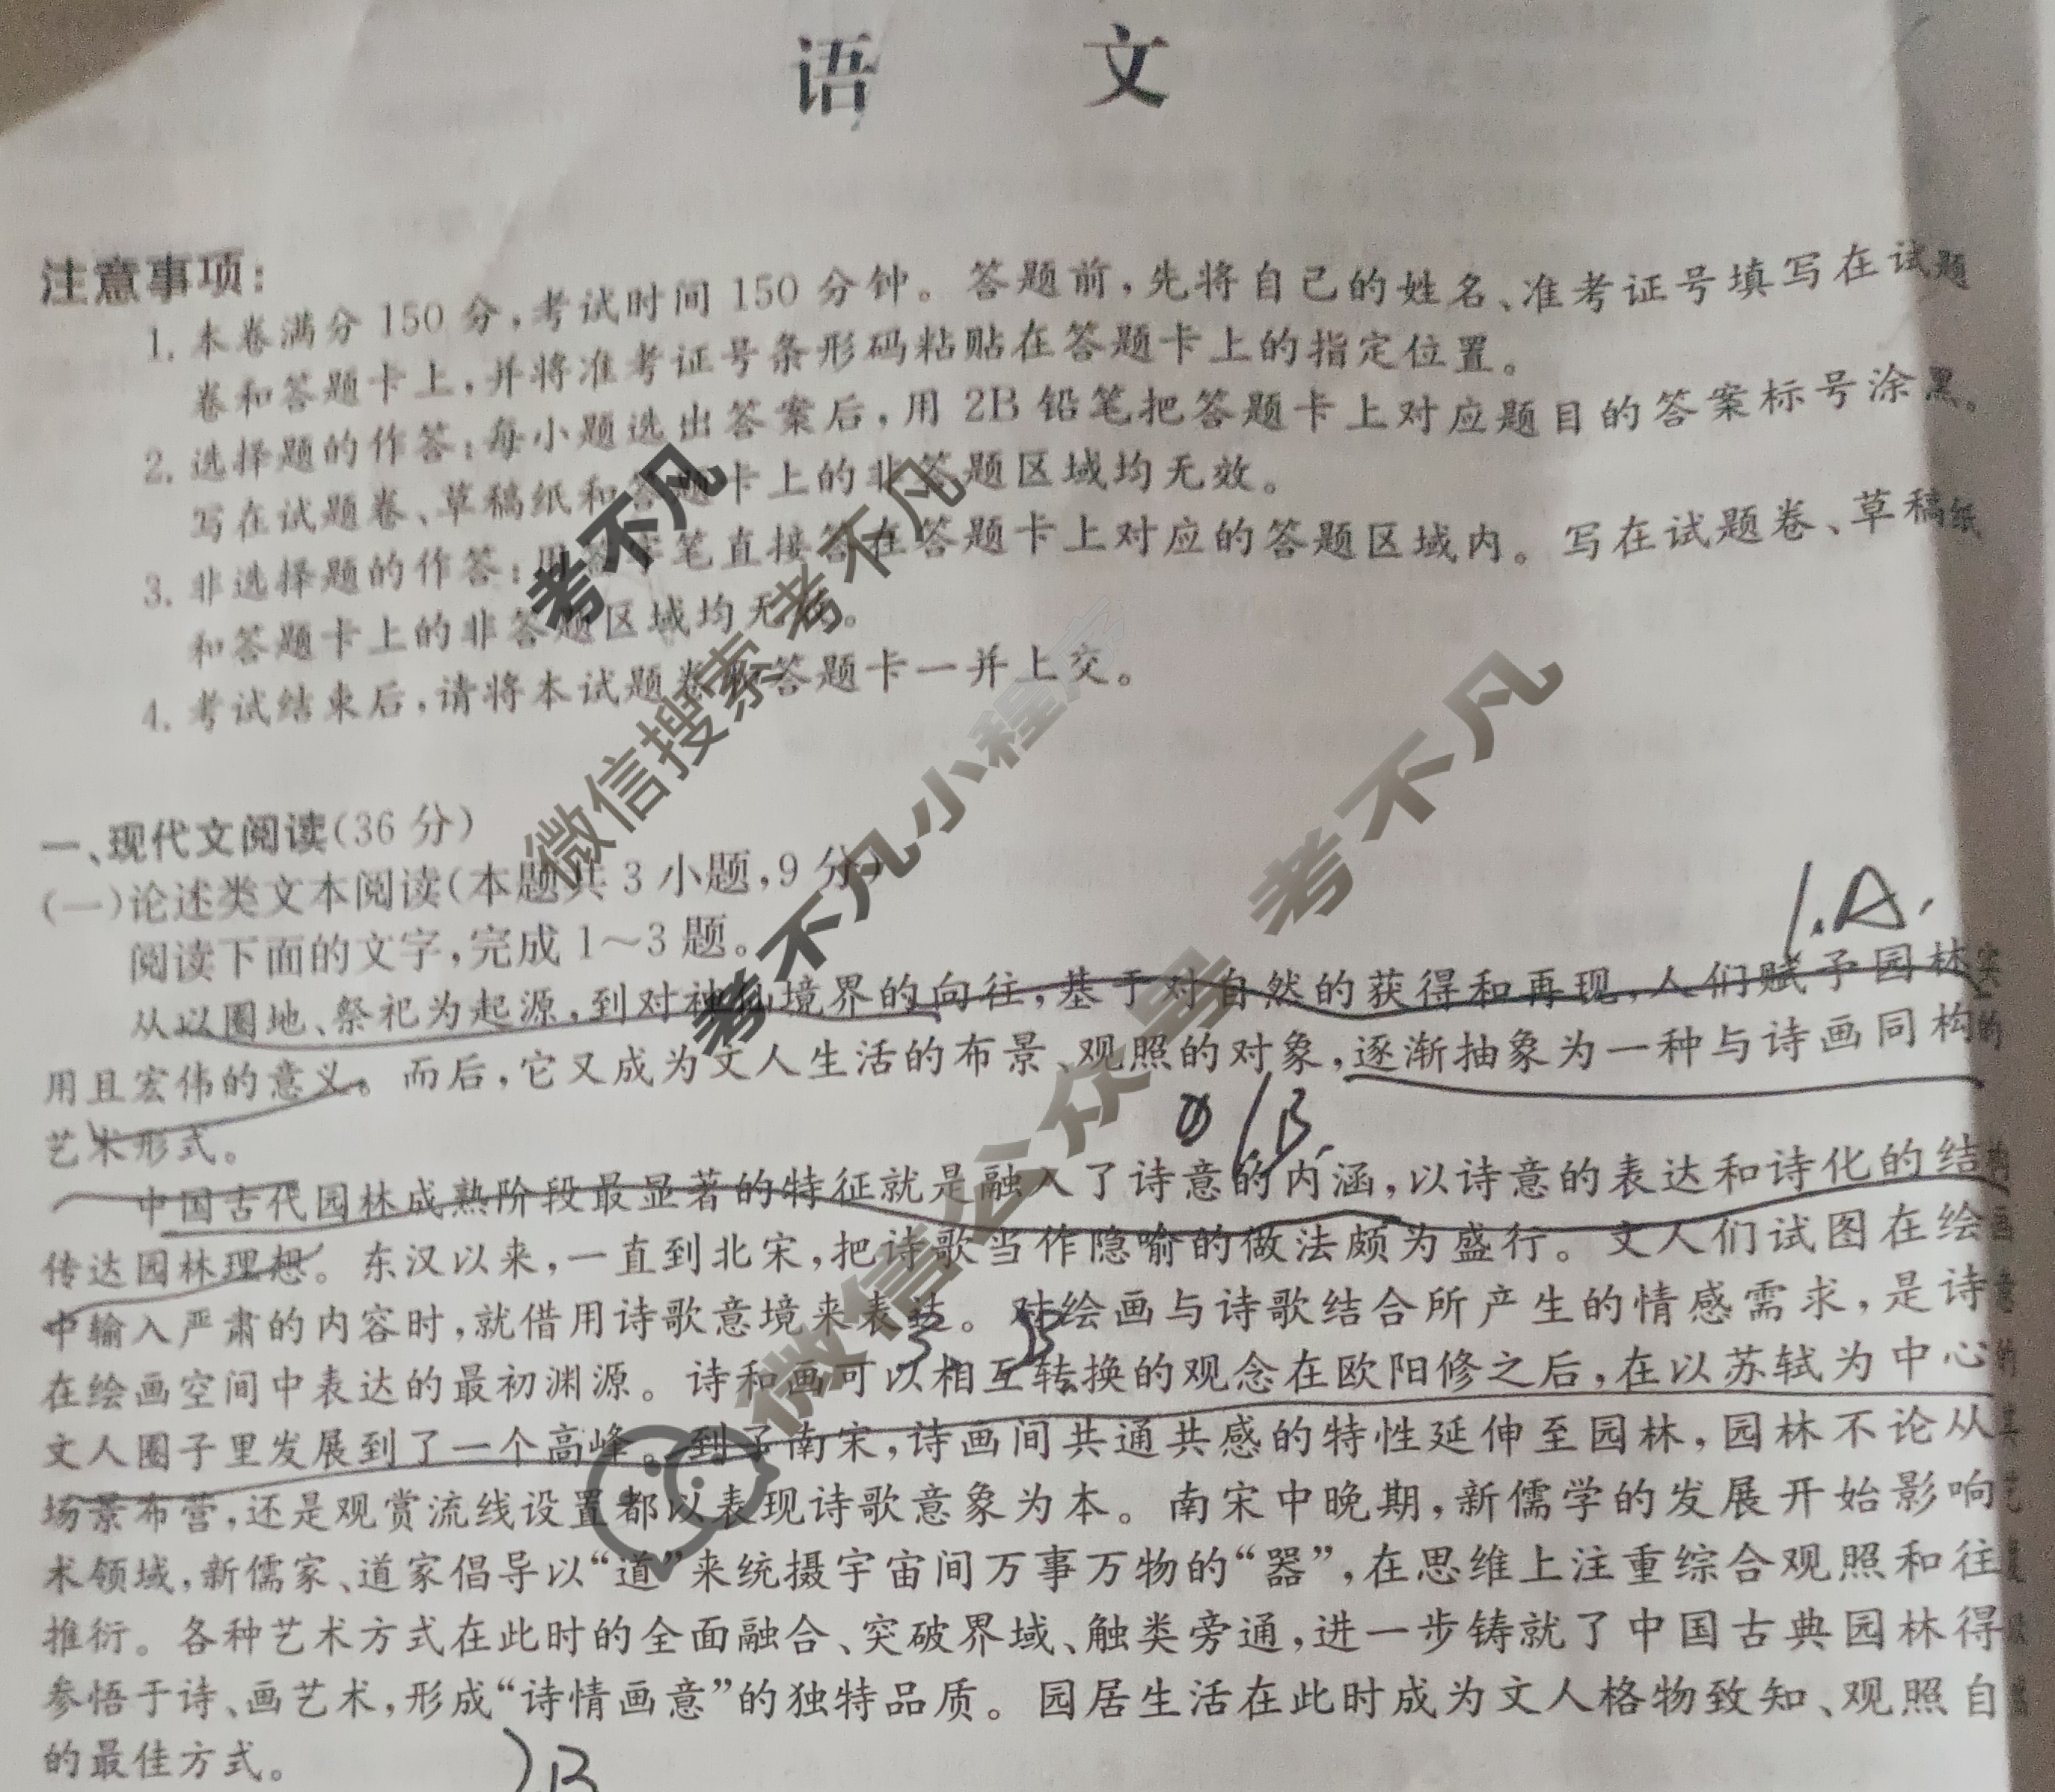 语 文
注意事项:
1. 本卷满分 150 分,考试时间 150 分钟。答题前,先将自己的姓名、准考证号填写在试题
卷和答题卡上,并将准考证号条形码粘贴在答题卡上的指定位置。
2. 选择题的作答:每小题选出答案后,用 2B 铅笔把答题卡上对应题目的答案标号涂黑。
写在试题卷、草稿纸和答题卡上的非答题区域均无效。
3. 非选择题的作答:用签字笔直接答在答题卡上对应的答题区域内。写在试题卷、草稿纸
和答题卡上的非答题区域均无效。
4. 考试结束后,请将本试题卷和答题卡一并上交。
考不凡
微信搜索考不凡
考不凡小程序
微信公众号 考不凡
一、现代文阅读(36 分)
(一)论述类文本阅读(本题共 3 小题,9 分)
阅读下面的文字,完成 1～3 题。
1.A.
从以圈地、祭祀为起源,到对神仙境界的向往,基于对自然的获得和再现,人们赋予园林实
用且宏伟的意义。而后,它又成为文人生活的布景、观照的对象,逐渐抽象为一种与诗画同构的
艺术形式。
1B.
中国古代园林成熟阶段最显著的特征就是融入了诗意的内涵,以诗意的表达和诗化的结构
传达园林理想。东汉以来,一直到北宋,把诗歌当作隐喻的做法颇为盛行。文人们试图在绘画
中输入严肃的内容时,就借用诗歌意境来表达。对绘画与诗歌结合所产生的情感需求,是诗意
3. B.
在绘画空间中表达的最初渊源。诗和画可以相互转换的观念在欧阳修之后,在以苏轼为中心的
文人圈子里发展到了一个高峰。到了南宋,诗画间共通共感的特性延伸至园林,园林不论从其
场景布营,还是观赏流线设置都以表现诗歌意象为本。南宋中晚期,新儒学的发展开始影响艺
术领域,新儒家、道家倡导以“道”来统摄宇宙间万事万物的“器”,在思维上注重综合观照和往复
推衍。各种艺术方式在此时的全面融合、突破界域、触类旁通,进一步铸就了中国古典园林得以
参悟于诗、画艺术,形成“诗情画意”的独特品质。园居生活在此时成为文人格物致知、观照自
的最佳方式。
)B